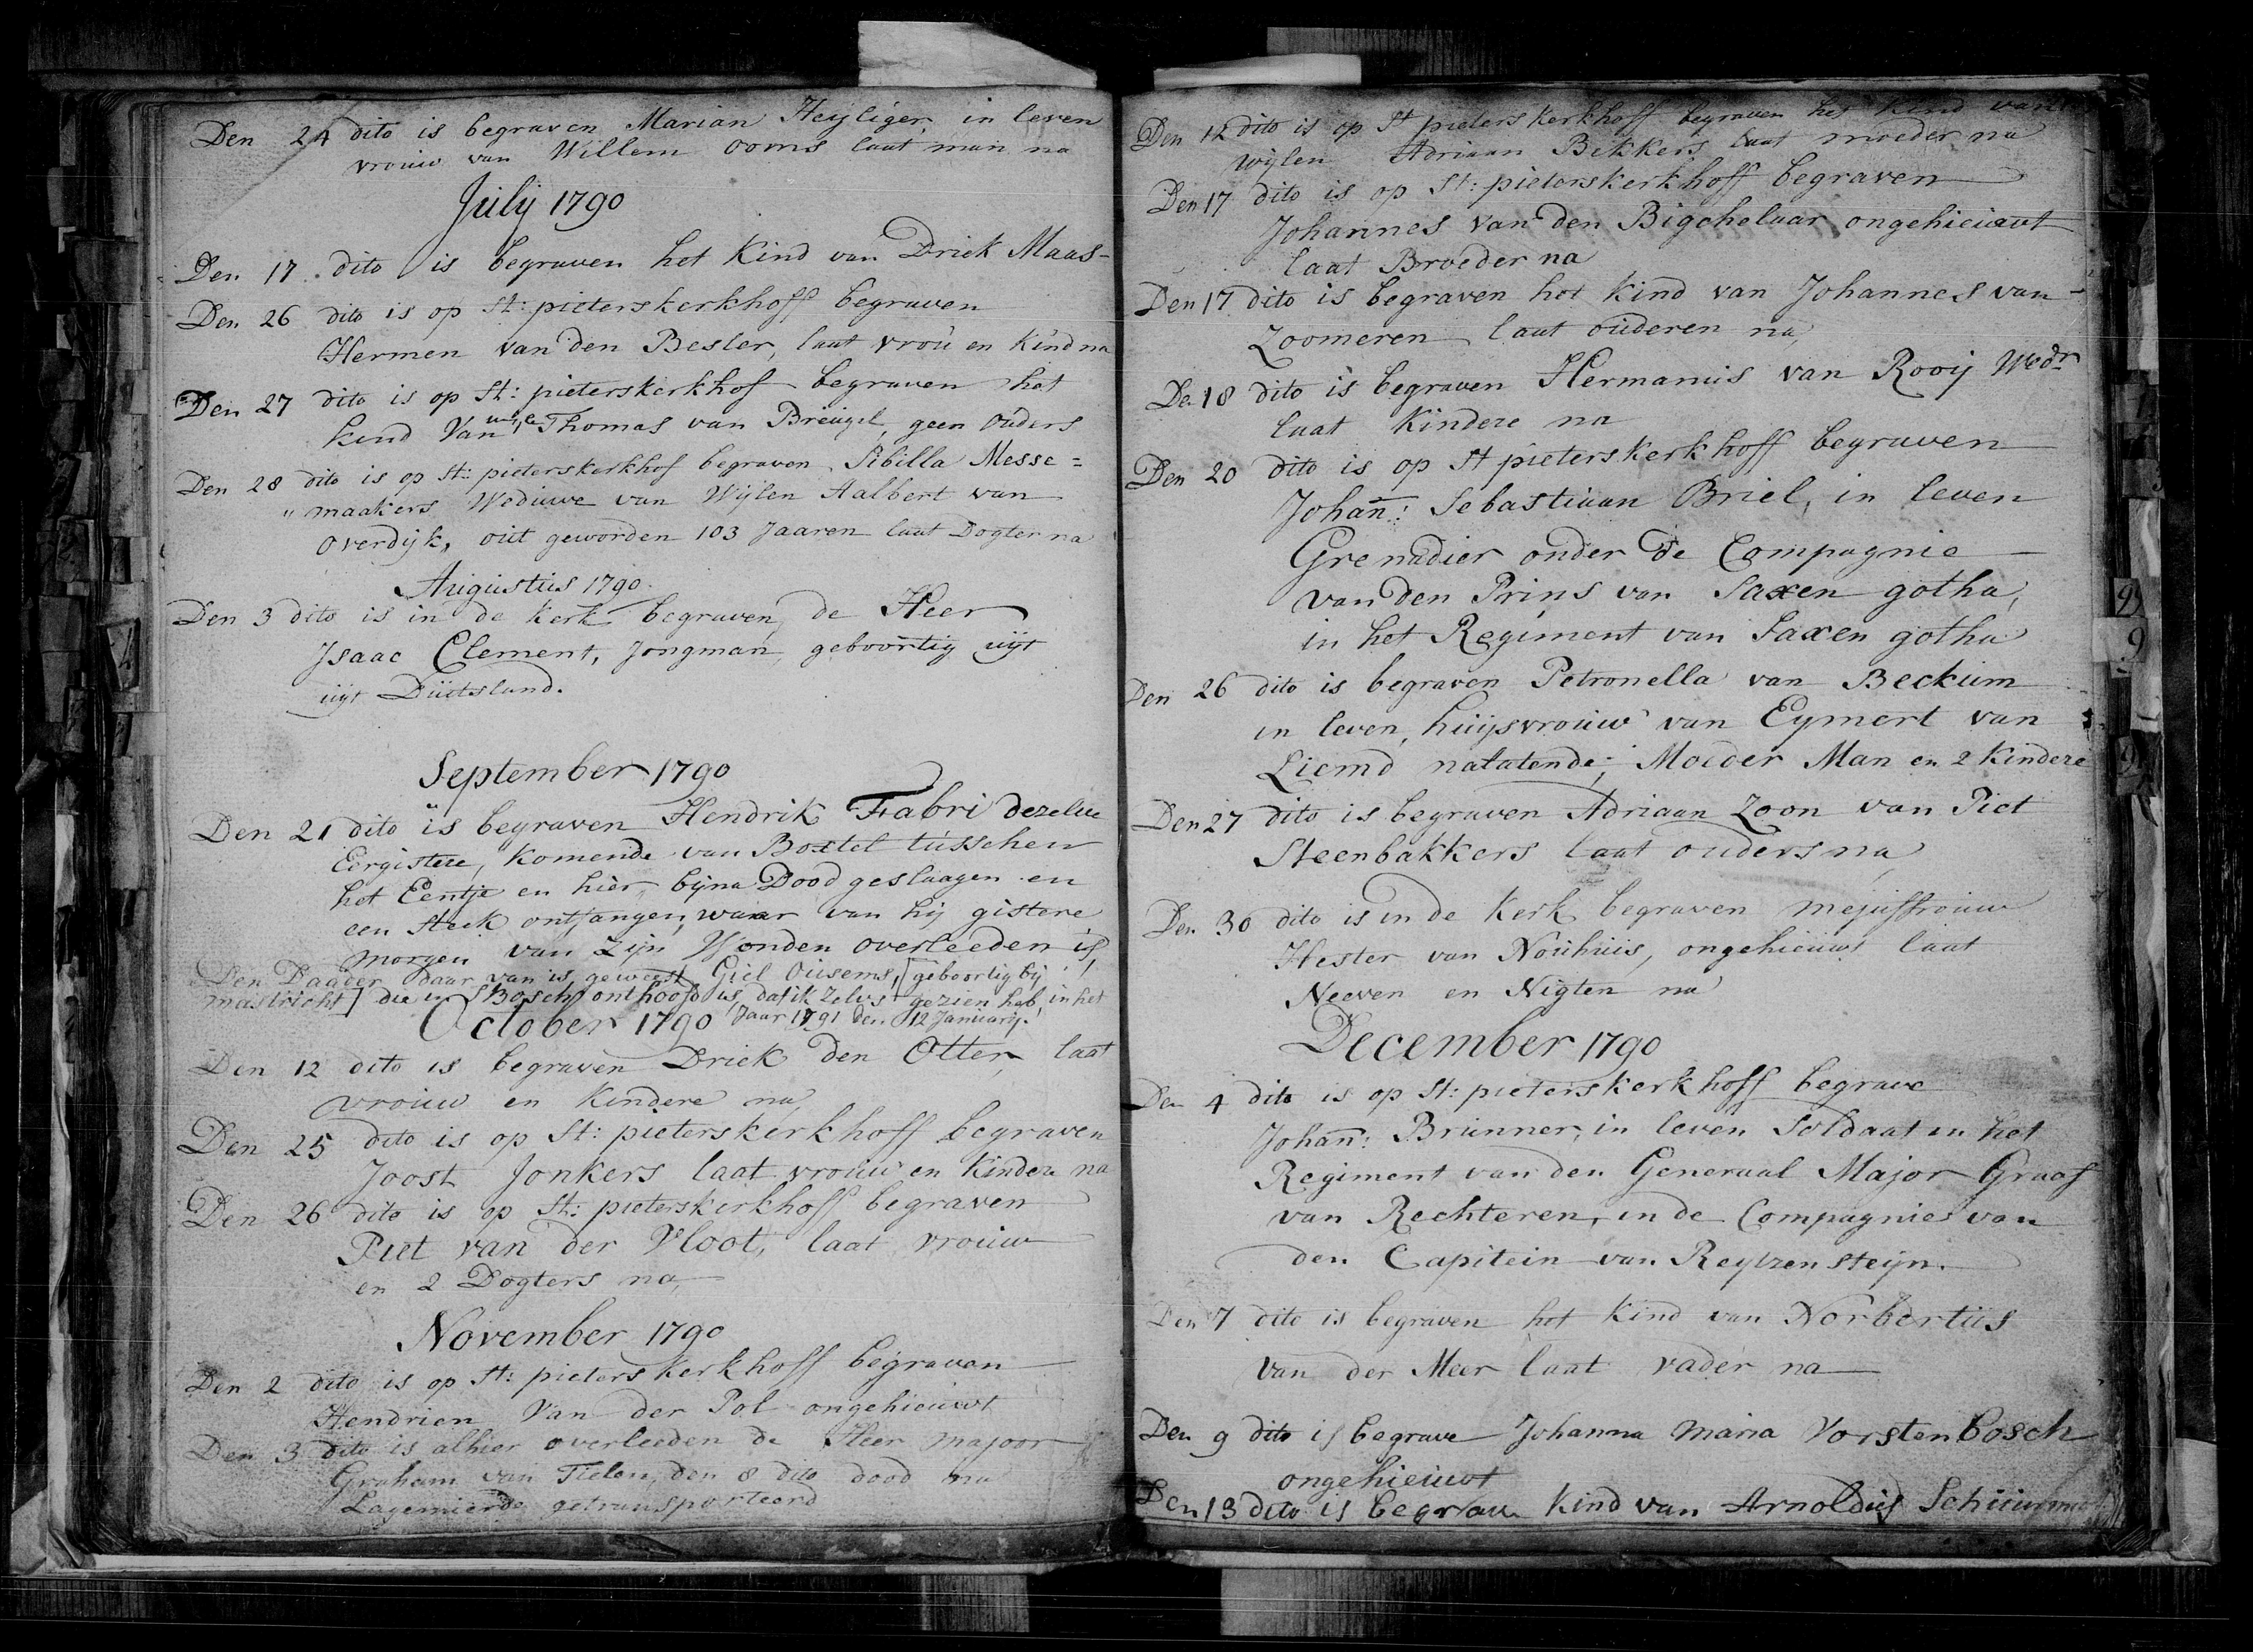 Den 24 dito is begraven Marian Heyliger in leven
vrouw van Willem Ooms laat man na
July 1790
Den 17 dito is begraven het Kind van Driek Maas-
Den 26 dito is op St: pieterskerkhoff begraven
Hermen van den Besler, laat vrou en Kind na
Den 27 dito is op St: pieterskerkhof begraven het
kind Van Thomas van Breugel, geen Ouders
Den 28 dito is op St: pieterskerkhof begraven Sibilla Messe=
" maakers Weduwe van Wijlen Aalbert van
Overdijk, out geworden 103 Jaaren laat Dogter na
Augustus 1790
Den 3 dito is in de kerk begraven, de Heer
Isaac Clement, Jongman, geboortig uijt
uijt Duitsland.
September 1790
Den 21 dito is begraven Hendrik Fabri dezelve
Eergistere, komende van Boxtel tusschen
het Eentje en hier, bijna Dood geslaagen en
een steek ontfangen, waar van hij gistere
morgen van zijn Wonden overleeden is,
Den Daader daar van is geweest Giel Ousems, [geboortig bij
mastricht] die in SBosch onthoofd is, dat ik zelvs gezien heb, in het
Jaar 1791 den 12 January.
October 1790
Den 12 dito is begraven Driek den Otter, laat
vrouw en Kindere na,
Den 25 dito is op St: pieterskerkhoff begraven
Joost Jonkers laat vrouw en Kindere na
Den 26 dito is op St: pieterskerkhoff begraven
Piet van der Vloot, laat vrouw
en 2 Dogters na,
November 1790
Den 2 dito is op St: pieterskerkhoff begraven
Hendrien Van der Pol ongehieuwt
Den 3 dito is alhier overleeden de Heer majoor
Graham van Tielen, den 8 dito dood na
Lagemierde getransporteerd
Den 12 dito is op St pieterskerkhoff begraven het kind van
wijlen Adriaan Bekkers laat moeder na
Den 17 dito is op St: pieterskerkhoff begraven
Johannes van den Bigchelaar ongehieuwt
laat Broeder na
Den 17 dito is begraven het kind van Johannes van
Zoomeren laat ouderen na,
De 18 dito is begraven Hermanus van Rooij Wedr
laat Kindere na
Den 20 dito is op St pieterskerkhoff begraven
Johan: Sebastiaan Briel, in leven
Grenadier onder de Compagnie
van den Prins van Saxen gotha,
in het Regiment van Saxen gotha
Den 26 dito is begraven Petronella van Beckum
in leven, huijsvrouw van Eymert van
Liemd nalatende; Moeder Man en 2 Kindere
Den 27 dito is begraven Adriaan Zoon van Piet
Steenbakkers laat ouders na,
Den 30 dito is in de Kerk begraven mejuffrouw
Hester van Nouhuis, ongehieuwt laat
Neeven en Nigten na
December 1790
Den 4 dito is op St: pieterskerkhoff begrave
Johan: Brunner, in leven Soldaat in het
Regiment van den Generaal Major Graaf
van Rechteren, in de Compagnie van
den Capitein van Reytzensteijn.
Den 7 dito is begraven het Kind van Norbertus
van der Meer laat vader na
Den 9 dito is begrave Johanna maria Vorstenbosch
ongehieuwt
Den 13 dito is begrave Kind van Arnoldus